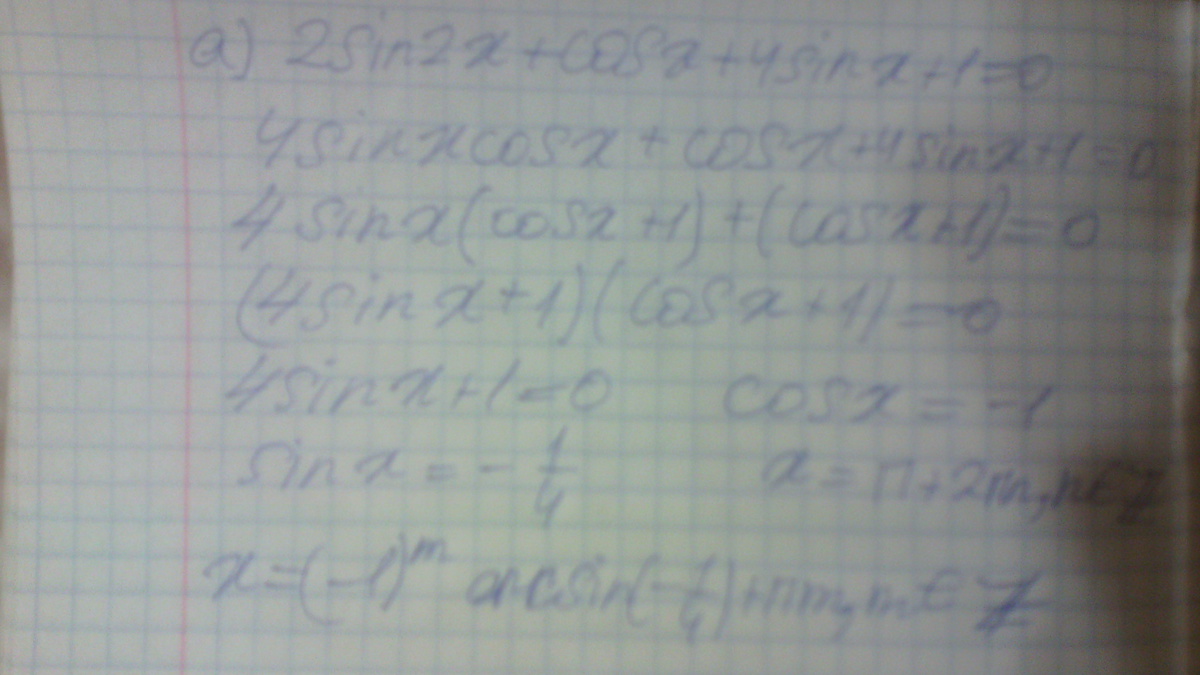 а) 2sin2x+cosx+4sinx+1=0
4sinxcosx+cosx+4sinx+1=0
4sinx(cosx+1)+(cosx+1)=0
(4sinx+1)(cosx+1)=0
4sinx+1=0 cosx=-1
sinx=-1/4 x=π+2πn,n∈Z
x=(-1)^m arcsin(-1/4)+πm,m∈Z